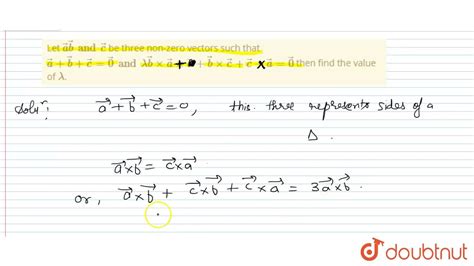 Let a⃗ b⃗ and c⃗ be three non-zero vectors such that
a⃗ + b⃗ + c⃗ = 0⃗ and λb⃗ × a⃗ + + b⃗ × c⃗ + c⃗ × a⃗ = 0⃗ then find the value
of λ.
Solun: a⃗ + b⃗ + c⃗ = 0, this three represents sides of a
Δ.
a⃗ × b⃗ = c⃗ × a⃗.
or, a⃗ × b⃗ + c⃗ × b⃗ + c⃗ × a⃗ = 3a⃗ × b⃗.
doubtnut